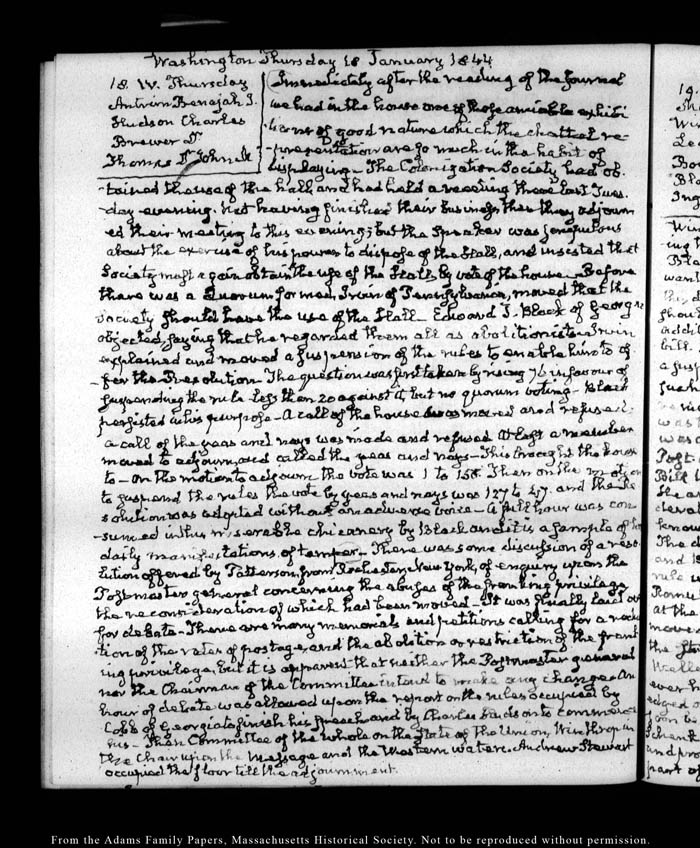 Washington Thursday 18 January 1844
18. IV. Thursday
Antrim Benajah J.
Hudson Charles
Brewer Dr
Thomas Dr John
Immediately after the reading of the Journal
we had in the house one of those amiable exhibi
tions of good nature which the chattel re-
-presentation are so much in the habit of
displaying. The Colonization Society had ob-
-tained the use of the hall, and had held a meeting there last Tues-
-day evening. Not having finished their business then they adjourn
ed their meeting to this evening; but the Speaker was scrupulous
about the exercise of his power to dispose of the Hall, and insisted that
Society must again obtain the use of the Hall, by vote of the house. Before
there was a Quorum formed, Irwin of Pennsylvania, moved that the
Society should have the use of the Hall. Edward J. Black of Georgia
objected, saying that he regarded them all as abolitionists. Irwin
explained and moved a suspension of the rules to enable him to of
-fer the Resolution. The question was first taken by rising 76 in favour of
suspending the rule less than 20 against it, but no quorum voting. Black
persisted in his purpose. A call of the house was moved and refused.
a call of the yeas and nays was made and refused. At last a member
moved to adjourn, and called the yeas and nays. This brought the house
to. On the motion to adjourn the vote was 1 to 158. Then on the motion
to suspend the rules the vote by yeas and nays was 127 to 47. and the Re
solution was adopted without an adverse voice. A full hour was con
-sumed in this miserable chicanery by Black and it is a sample of his
daily manifestations of temper. There was some discussion of a reso-
lution offered by Patterson, from Rochester, New York, of enquiry upon the
Postmaster general concerning the abuses of the franking privilege
the reconsideration of which had been moved. It was finally laid over
for debate. There are many memorials and petitions calling for a reduc
tion of the rates of postage, and the abolition or restriction of the frank
ing privilege, but it is apparent that neither the Postmaster general
nor the Chairman of the Committee intend to make any change. An
hour of debate was allowed upon the report on the rules occupied by
Cobb of Georgia to finish his speech and by Charles Hudson to commence
his. Then Committee of the whole on the State of the Union, Winthrop in
the Chair upon the Message and the Western waters. Andrew Stewart
occupied the floor till the adjournment.
From the Adams Family Papers, Massachusetts Historical Society. Not to be reproduced without permission.